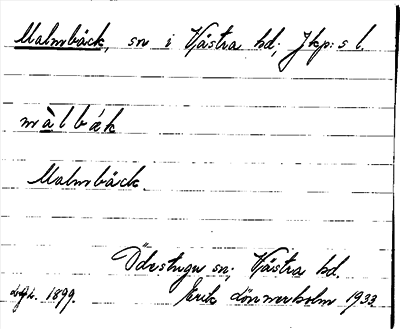 Malmbäck, sn i Västra hd; Jkp:s l.
màlbäk
Malmbäck.
Ödestugu sn; Västra hd.
Erik Lönnerholm 1933
1899.